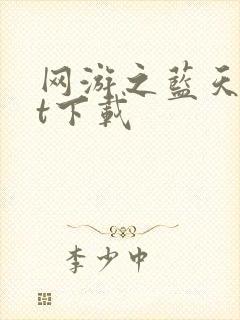 网游之蓝天
t下载
李少中